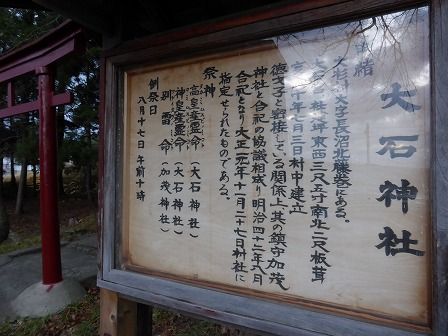 大石神社
由緒
久杉川大字長沼北勝巻にある。
七石の社は東西三尺五寸南北二尺板茸
七月三日村中建立
徳万子と岩接している関係上其の鎮守加茂
神社と合祀の協議相成り明治四十二年八月
合祀となり大正元年十一月二十七日村社に
指定せられたものである。
祭神
高皇産霊命（大石神社）
神皇産霊命（大石神社）
別雷命（加茂神社）
例祭日
八月十七日 午前十時